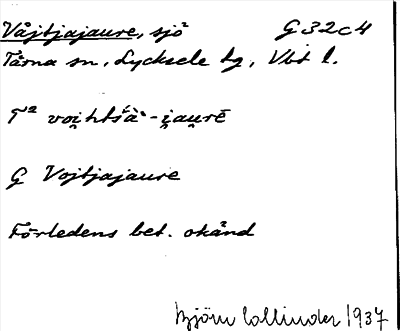 Våjtjajaure, sjö G32c4
Tärna sn, Lycksele tg, Vbt l.
T² voi̯htšà·-i̯au̯rē
G Vojtjajaure
Förledens bet. okänd
Björn Collinder 1937